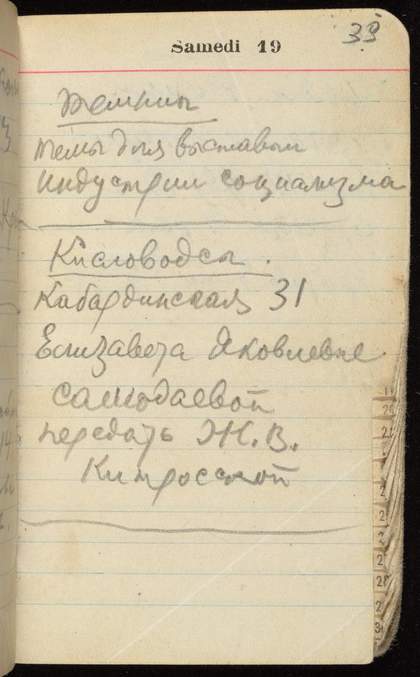 Samedi 19
33
темы для выставки
индустрии социализма
Кисловодск.
Кабардинская 31
Елизавета Яковлевне
самодаевой
передать Ж. В.